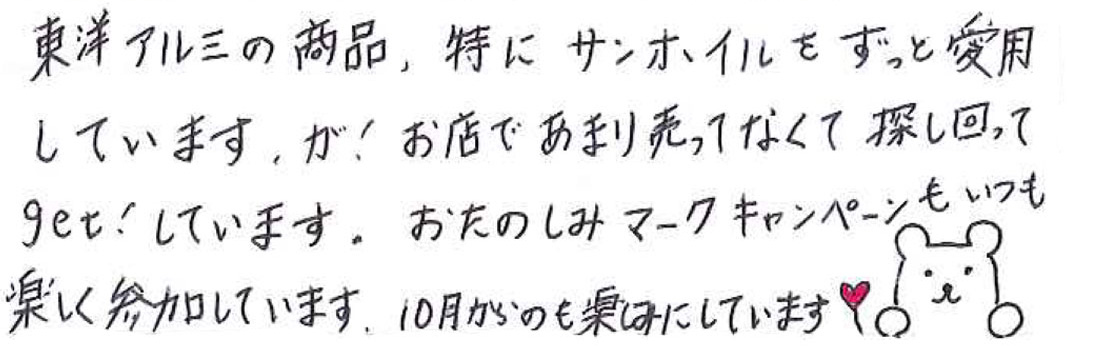 東洋アルミの商品、特に サンホイルを ずっと愛用
しています、が! お店で あまり売ってなくて 探し回って
get!しています。 おたのしみ マーク キャンペーンも いつも
楽しく参加しています、10月からのも楽しみにしています